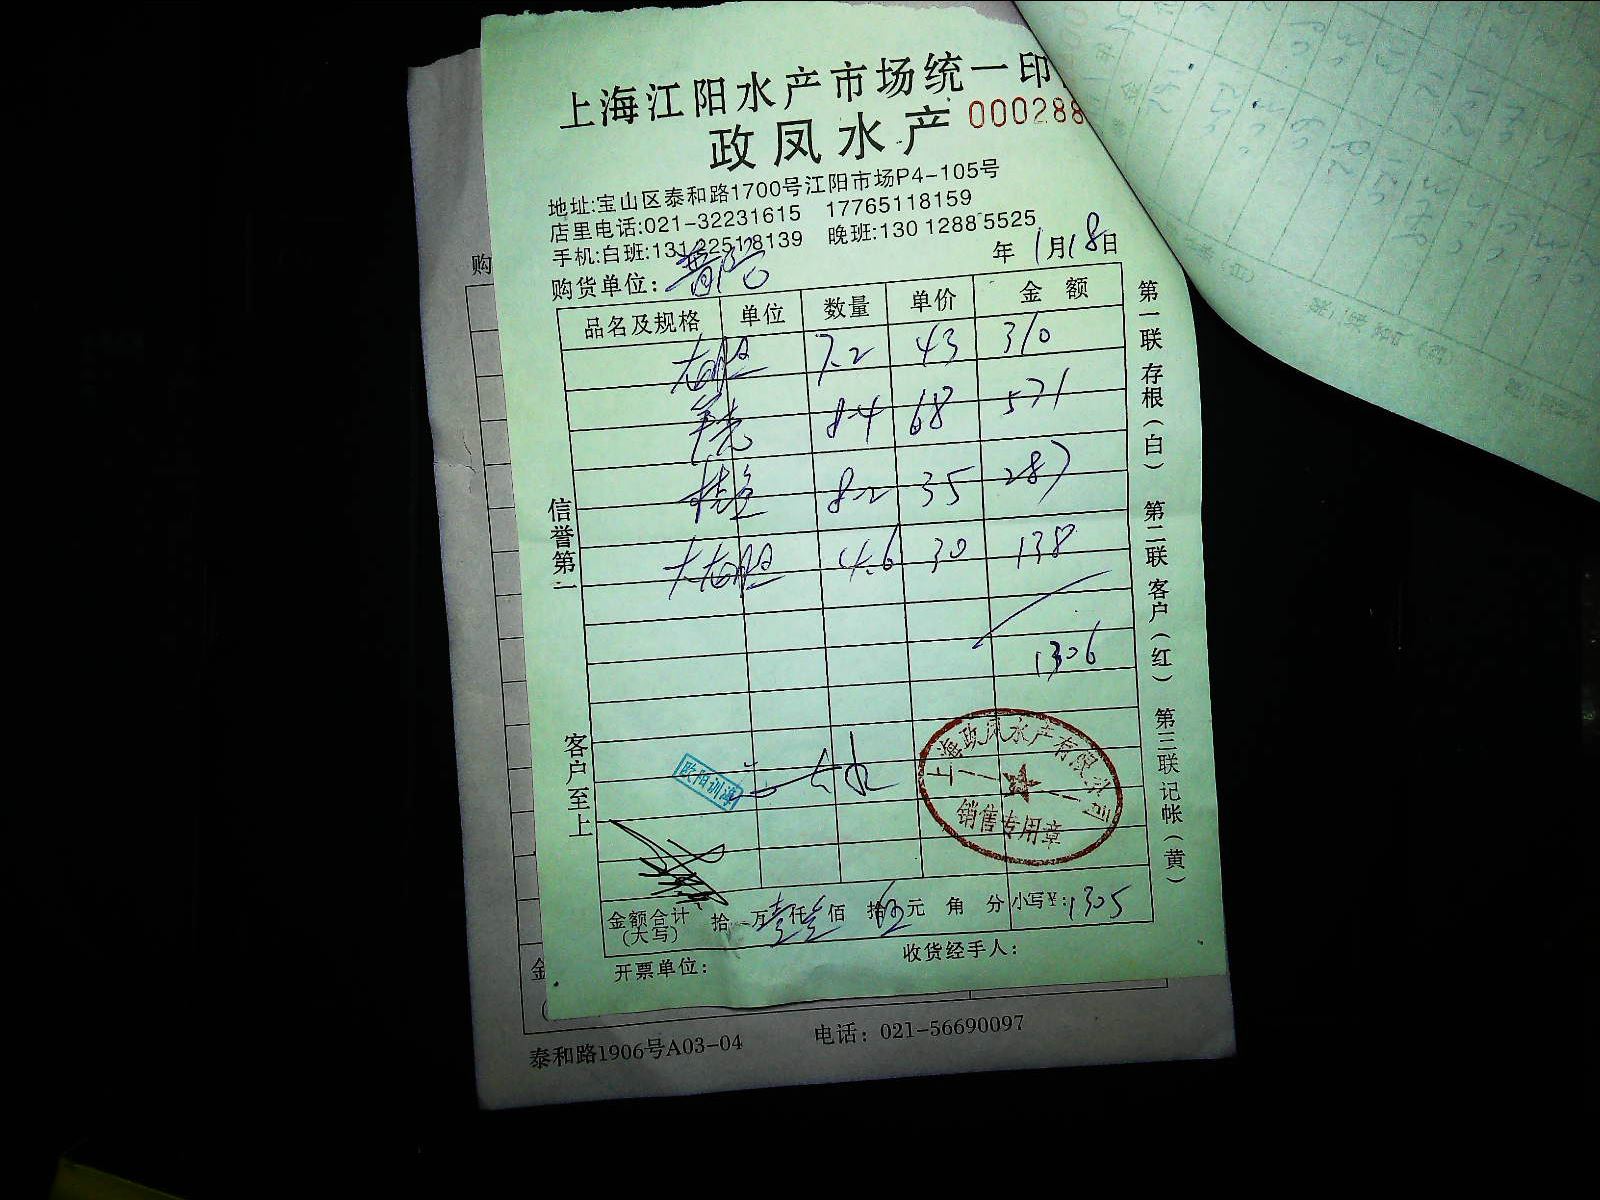 上海江阳水产市场统一印
政凤水产 000288
地址:宝山区泰和路1700号江阳市场P4-105号
店里电话:021-32231615 17765118159
手机:白班:13122518139 晚班:130 1288 5525
购货单位: 年 1月18日
品名及规格 单位 数量 单价 金 额
7.2 43 310
8.4 68 571
8.2 35 287
4.6 30 138
1306
欧阳训海
上海政凤水产有限公司
销售专用章
金额合计(大写) 拾 万壹仟叁佰 拾伍元 角 分 小写¥:1305
开票单位: 收货经手人:
信誉第一
客户至上
第一联存根(白) 第二联客户(红) 第三联记帐(黄)
购
金
泰和路1906号A03-04 电话: 021-56690097